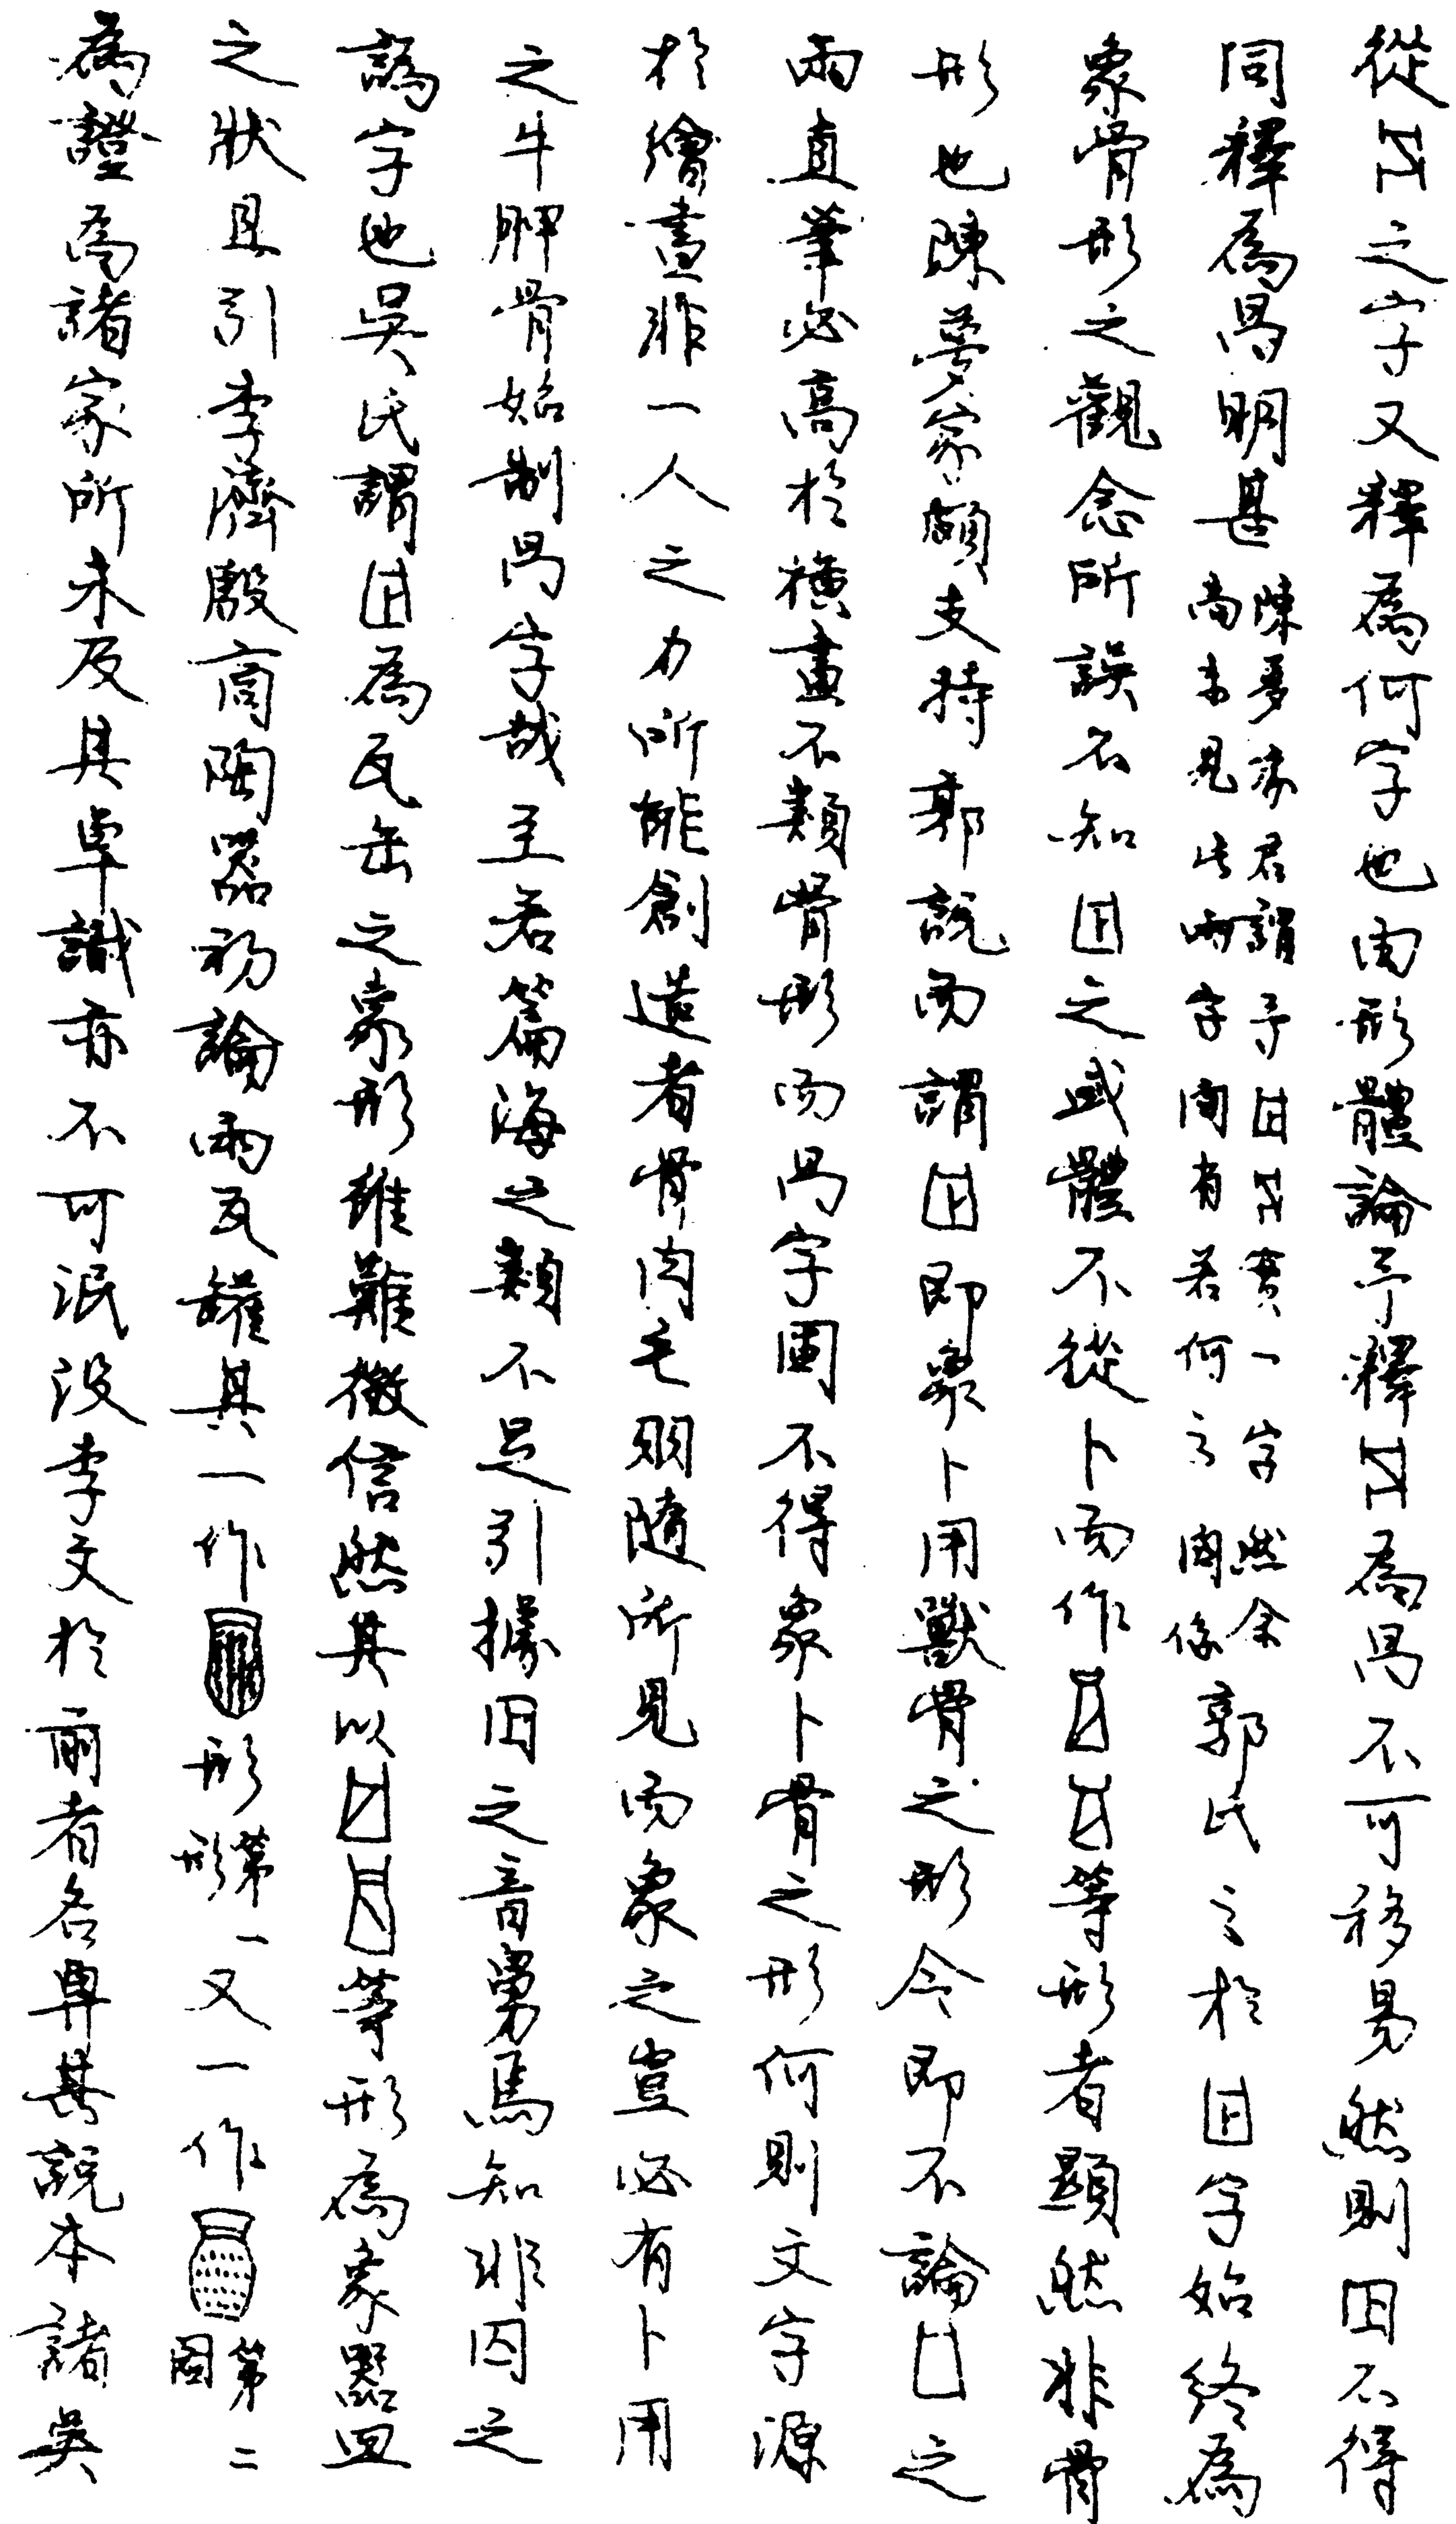 從之字又釋爲何字也由形體論予釋爲咼不可移易然則𡆥不得
同釋爲咼明甚陳夢家君謂予𡆥實一字然余尚未見此兩字間有若何之關係郭氏之於𡆥字始終爲
象骨形之觀念所誤不知𡆥之或體不從卜而作等形者顯然非骨
形也陳夢家頗支持郭說而謂𡆥即象卜用獸骨之形今即不論之
兩直筆必高於橫畫不類骨形而咼字圍不得象卜骨之形何則文字源
於繪畫非一人之力所能創造者骨肉毛羽隨所見而象之豈必有卜用
之牛胛骨始制咼字哉至若篇海之類不足引據𡆥之音冑焉知非囚之
譌字也吳氏謂𡆥爲瓦缶之象形雖難徵信然其以等形爲象器皿
之狀且引李濟殷商陶器初論兩瓦罐其一作形第一形又一作第二圖
爲證爲諸家所未及其卓識亦不可泯沒李文於兩者名算其說本諸吳